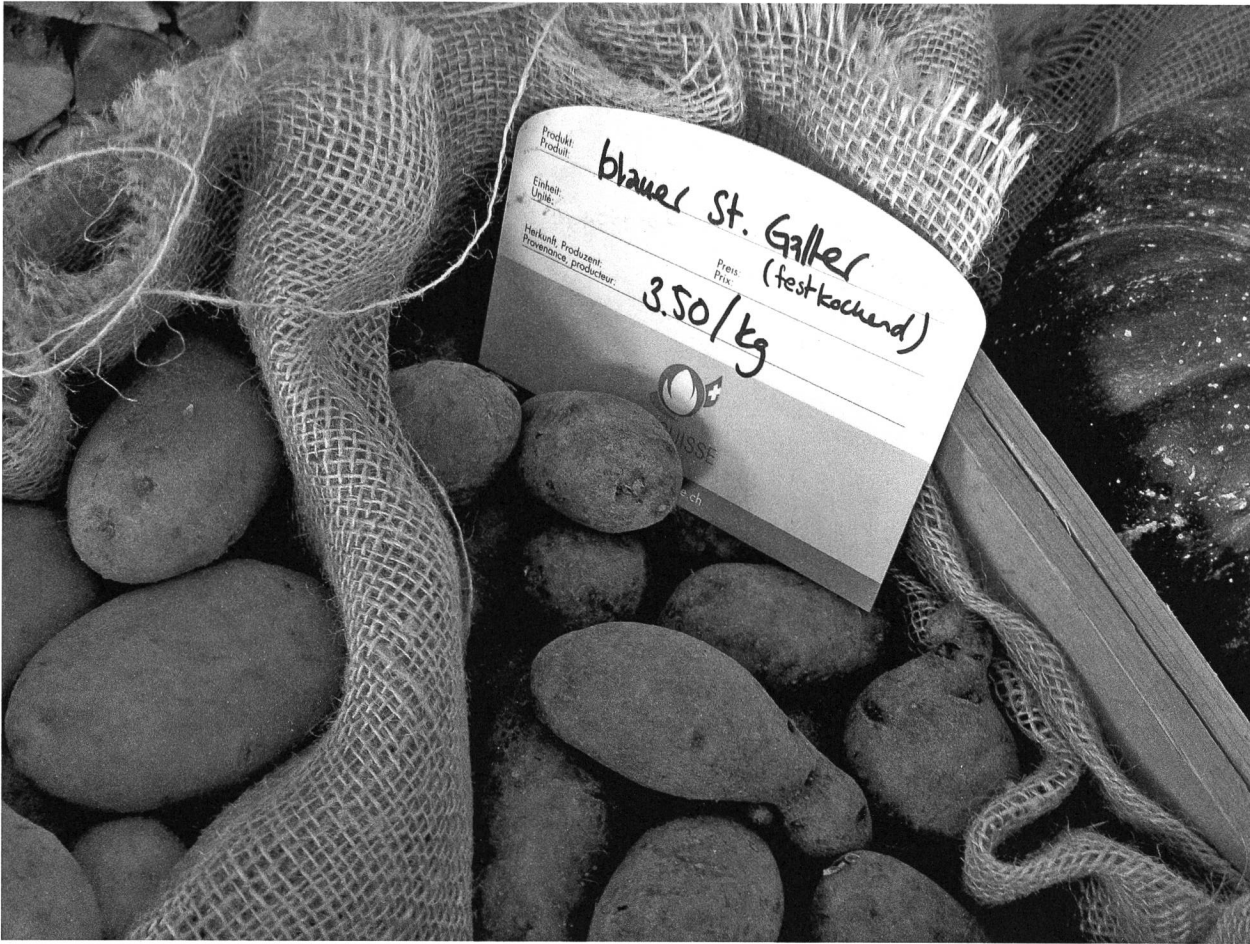 Produkt:
Produit:
blauer St. Galler
Einheit:
Unité:
Preis:
Prix:
(festkochend)
Herkunft, Produzent:
Provenance, producteur:
3.50/kg